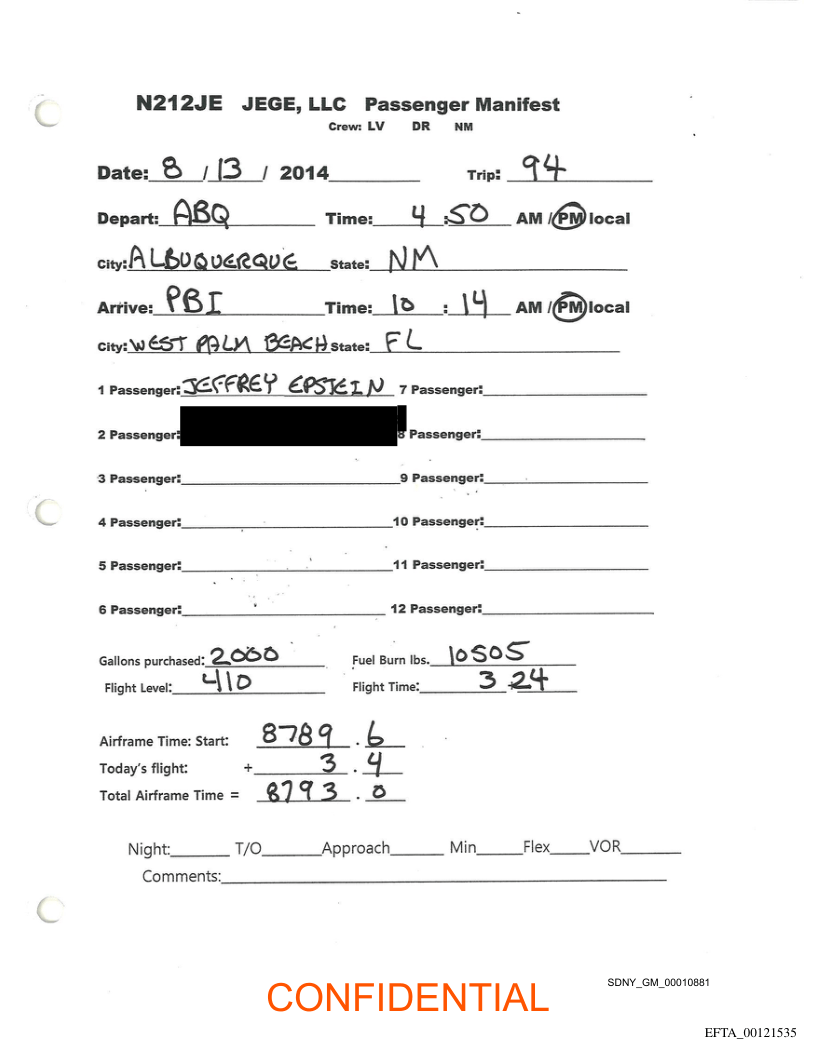 N212JE JEGE, LLC Passenger Manifest
Crew: LV DR NM
Date: 8 / 13 / 2014 Trip: 94
Depart: ABQ Time: 4 : 50 AM / PM local
City: ALBUQUERQUE State: NM
Arrive: PBI Time: 10 : 14 AM / PM local
City: WEST PALM BEACH State: FL
1 Passenger: JEFFREY EPSTEIN 7 Passenger:
2 Passenger: 8 Passenger:
3 Passenger: 9 Passenger:
4 Passenger: 10 Passenger:
5 Passenger: 11 Passenger:
6 Passenger: 12 Passenger:
Gallons purchased: 2000 Fuel Burn lbs. 10505
Flight Level: 410 Flight Time: 3 24
Airframe Time: Start: 8789 . 6
Today's flight: + 3 . 4
Total Airframe Time = 8793 . 0
Night: T/O Approach Min Flex VOR
Comments:
SDNY_GM_00010881
CONFIDENTIAL
EFTA_00121535